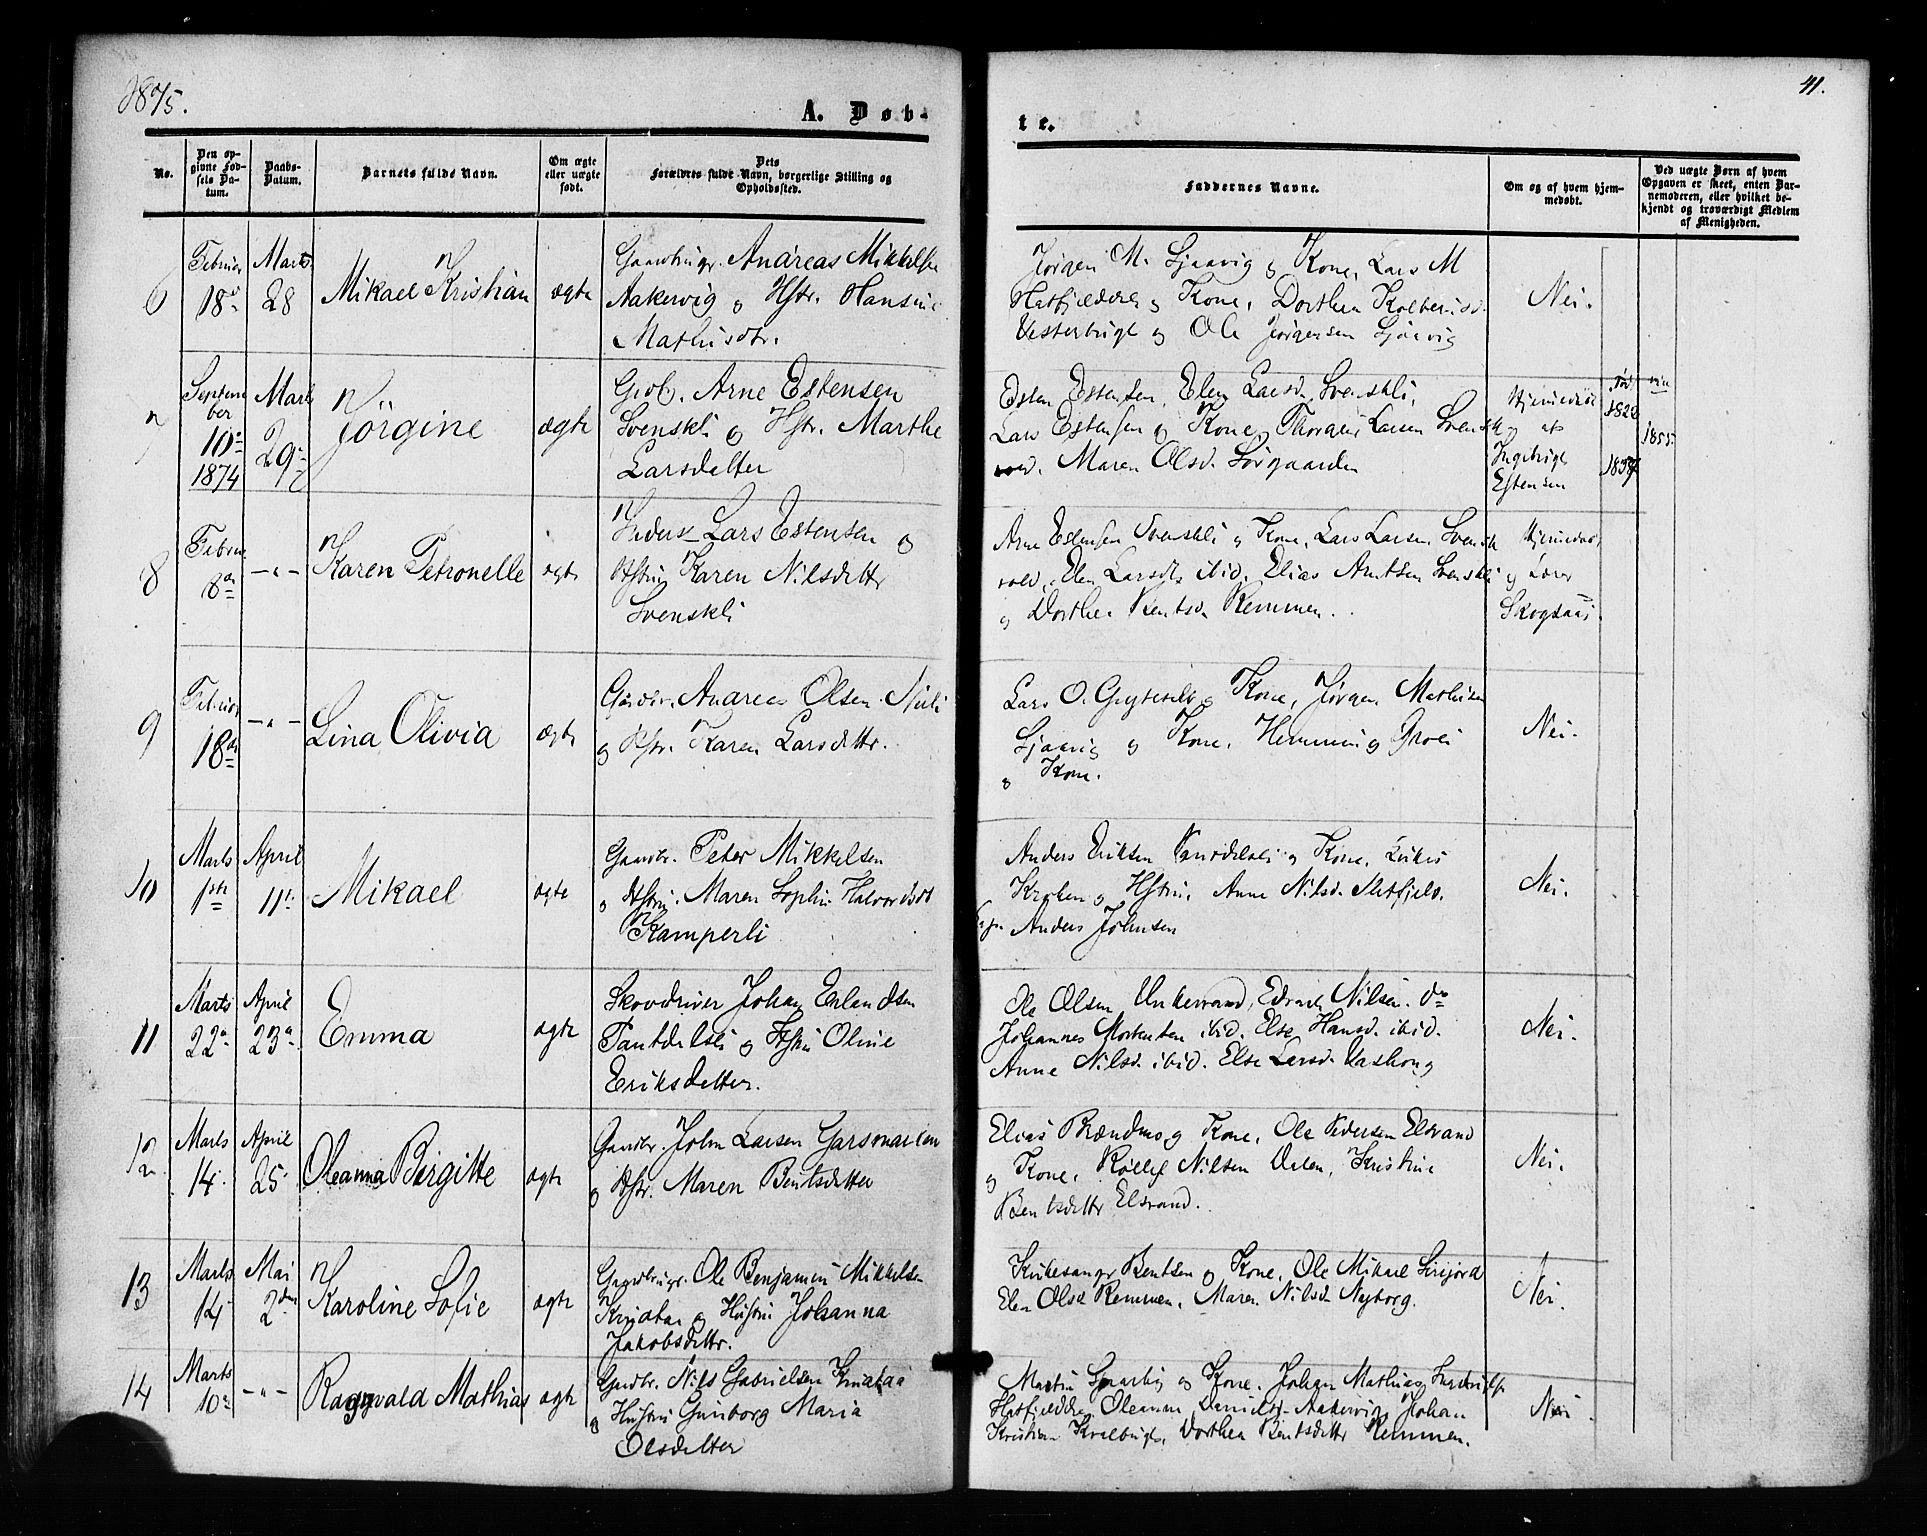 1875.
A. Døb-
te.
41.
No.
Den op-
givne Fød-
sels Da-
tum.
Daabs-
Datum.
Barnets fulde Navn.
Om ægte
eller uægte
født.
Dets
Forældres fulde Navn, borgerlige Stilling og
Opholdssted.
Faddernes Navne.
Om og af hvem hjem-
medøbt.
Ved uægte Børn af hvem
Opgaven er skeet, enten Bar-
nemoderen, eller hvilket be-
kjendt og troværdigt Medlem
af Menigheden.
6
Februar
18de
Marts
28
Mikael Kristian
ægte
Gaardbrugr. Andreas Mikkelsen
Aakervig og Hstr. Hansine
Mathisdtr.
Jørgen M. Sjaavig og Kone, Lars M
Hatfjelddal og Kone, Dorthea
og Ole Jørgensen Sjaavig
Nei.
7
Septem
ber
10de
1874
Marts
29
Jörgine
ægte
Arne Estensen
Svenskli og Hstr. Marthe
Larsdatter
Esten Estensen, Elen Larsd. Svenskli,
Lars Estensen og Kone, Larsen Svensk
vold. Maren Olsd. Sørgaarden
Hjemmedøbt
af
Ingebrigt
Estensen
1855
8
Februar
8de
Karen Petronelle
ægte
Lars Estensen og
Hstru Karen Nilsdatter
Svenskli
Arne Estensen Svenskli og Kone, Lars Larsen Svensk
vold, Elen Larsdtr ibid. Elias Arntsen Svenskli
og Dorthea Bentsd Remmen.
Hjemmedøbt
Lærer
Skogsaas.
9
Februar
18de
Lina Olivia
ægte
Gaardbr. Andreas Olsen
og Hstr. Karen Larsdattr.
Lars O. og Kone, Jørgen Mathisen
Sjaavig og Kone, Hemming
og Kone.
Nei.
10
Marts
1ste
April
11te
Mikael
ægte
Gaardbr. Peter Mikkelsen
og Hstru. Maren Sophie Halvorsdt
Kamperli
Anders Eriksen og Kone,
og Hstru, Anne Nilsd.
Anders Johnsen
Nei.
11
Marts
22de
April
23de
Emma
ægte
Skovdriver Johan Erlandsen
og Hstru Oline
Eriksdatter.
Ole Olsen Unkervand, Nilsen. do
Johannes ibid. Else Hansd. ibid.
Anne Nilsd ibid. Else Larsd.
Nei.
12
Marts
14
April
25
Oleanna Birgitte
ægte
Gaardbr. John Larsen
og Hstr. Maren Bentsdatter
Elias Brændmo og Kone, Ole Pedersen Elsvand
og Kone, Nilsen Kristine
Bentsdattr Elsvand.
Nei.
13
Marts
14
Mai
2den
Karoline Sofie
ægte
Gaardbrugr. Ole Benjamin Mikkelsen
og Hustru Johanna
Jakobsdattr.
Kirkesanger Bentsen og Kone, Ole Mikael
Elen Olsd Remmen, Maren Nilsd Nyborg.
Nei.
14
Marts
10de
Ragnvald Mathias
ægte
Gaardbr. Nils Gabrielsen
og Hustru Gunborg Maria
Olsdatter
Martin og Kone. Johan Mathias
Hatfjelddal, Oleanna Danielsd. Aakervig, Johan
Kristian Dorthea Bentsdattr Remmen.
Nei.